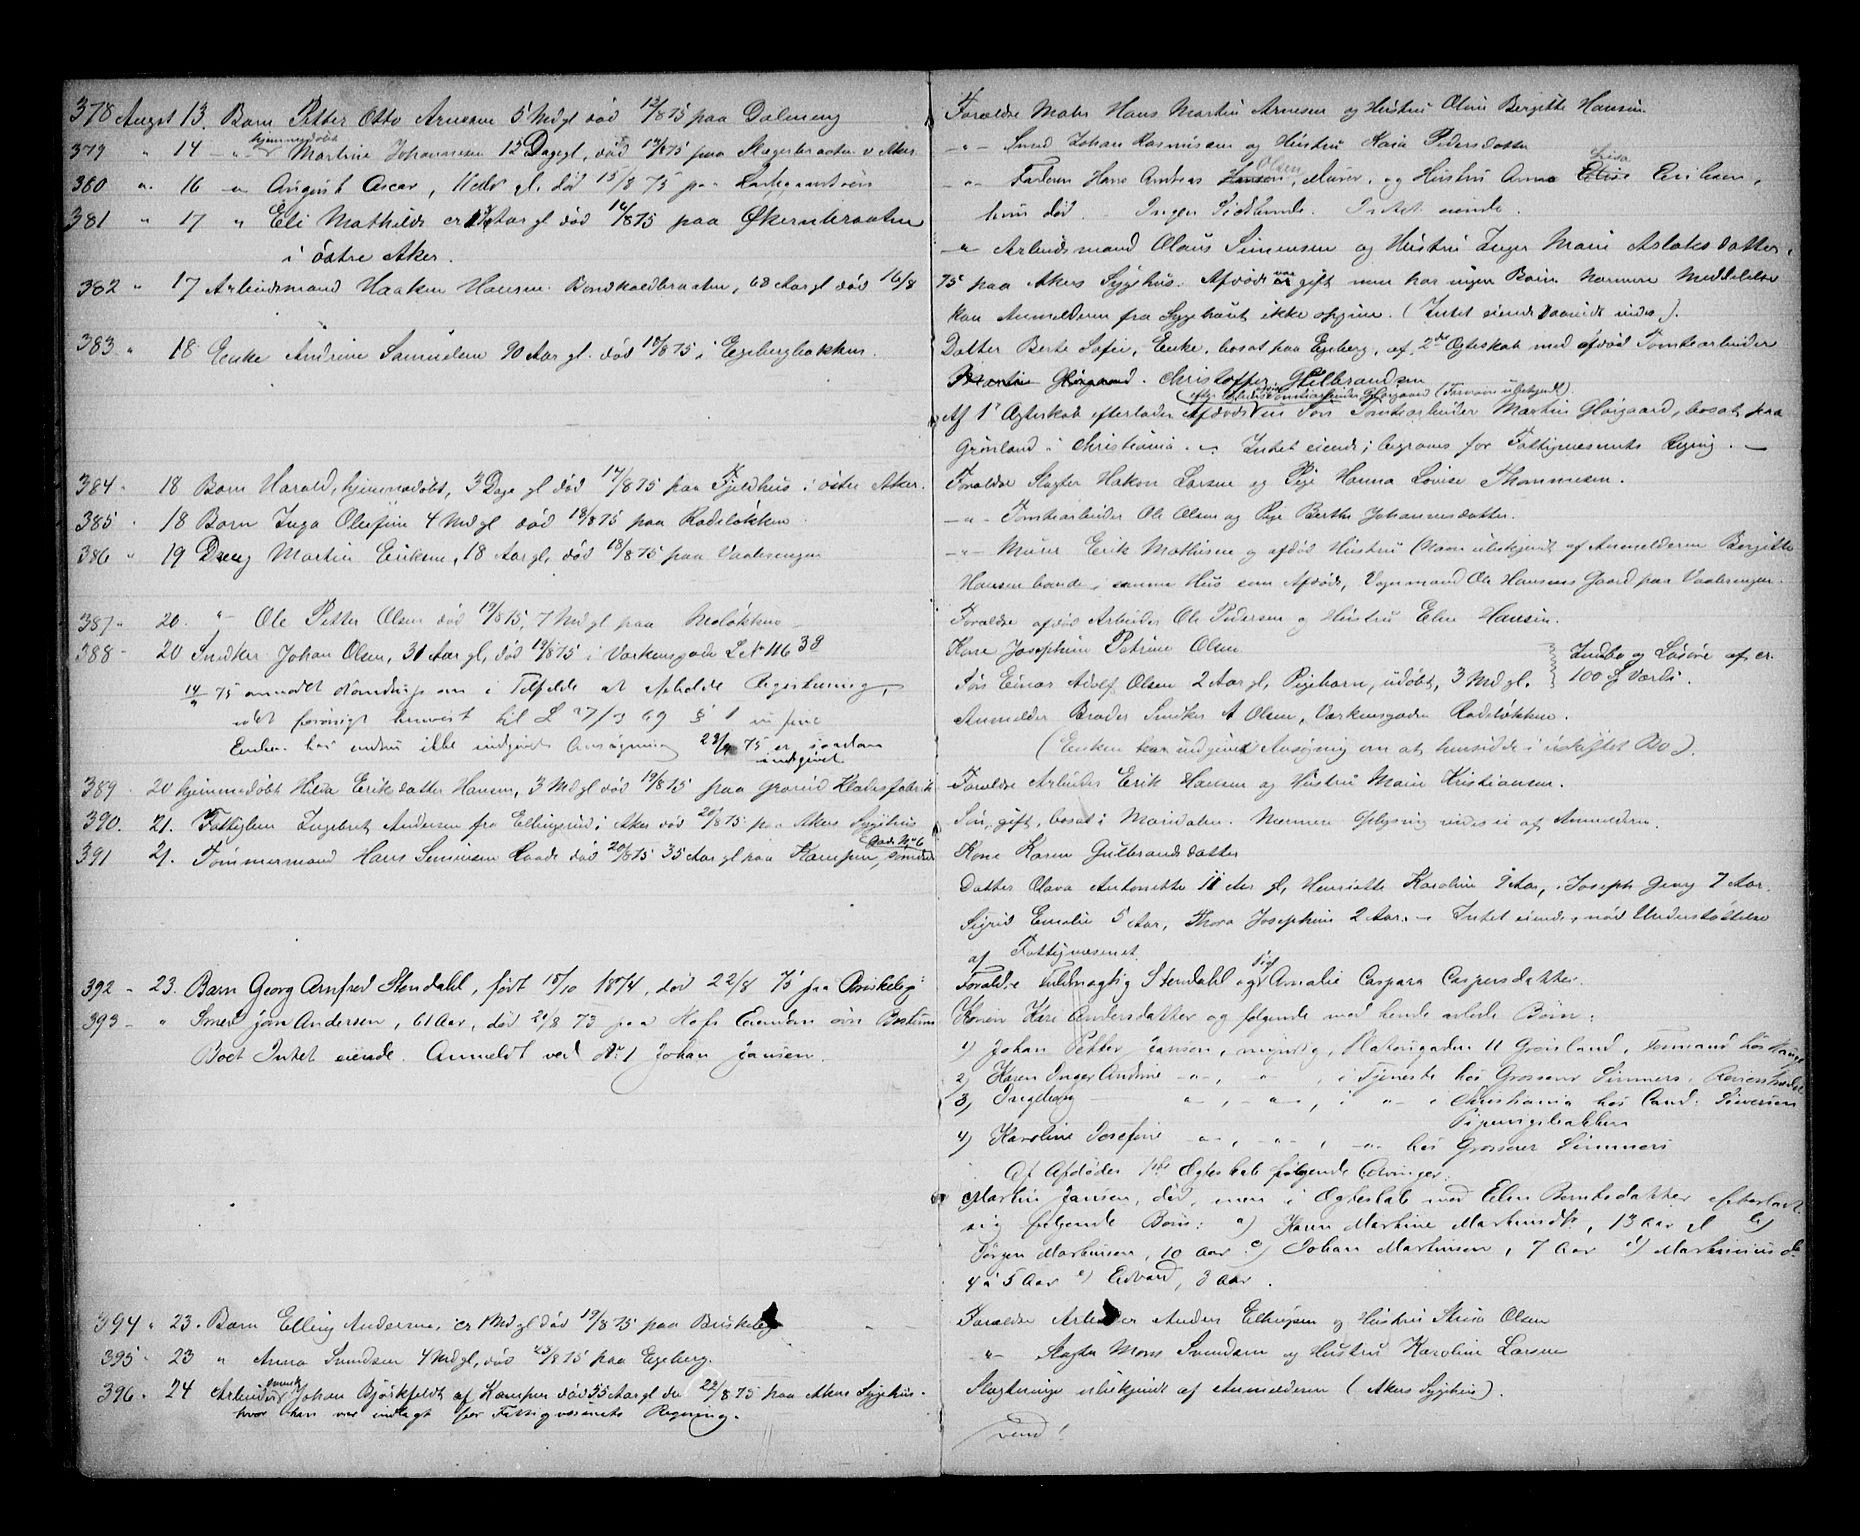 378 August 13. Barn Petter Otto Arnesen 5 Mdgl død 12/8 75 paa Dæleneng
Forældre Maler Hans Martin Arnesen og Hustru Oline Bergitte Hansen
hjemmedøbt
379 " 14 " Martine Johannesen 12 Dage gl, død 12/8 75 paa Ø Aker
-"- Smed Johan Rasmussen og Hustru Marie Pedersdatter
Olsen
380 " 16 " August Oscar, gl. død 15/8 75 paa
-"- Faderen Hans Andreas Hansen, Murer, og Hustru Anna Elise Eriksen,
hun død. Ingen Sødskende. Intet eiende.
381 " 17 " Eli Mathilde er Aar gl død 16/8 75 paa Økernbraaten
i østre Aker.
-"- Arbeidsmand Olaus Simensen og Hustru Inger Marie Aslaksdatter
382 " 17 Arbeidsmand Haaken Hansen 68 Aar gl død 16/8
75 paa Akers Sygehus. Afdøde var gift men har ingen Børn. Nærmere Meddelelse
kan Anmelderen fra Sygehuset ikke opgive. (Intet eiende saavidt vides).
383 " 18 Enke Andrine Samuelsen 90 Aar gl. død 18/8 75 i Egebergbakken.
Datter Berte Sofie, Enke, bosat paa Egeberg, af 2det Ægteskab med afdød Tomtearbeider
Christoffer Gulbrandsen
Af 1' Ægteskab efterlader Afdøde en Søn Tomtearbeider Martin Glørgaard, bosat paa
Grønland i Christiania. - Intet eiende; begraves for Fattigvæsenets Regning. -
384 " 18 Barn Harald, hjemmedøbt, 3 Dage gl død 17/8 75 paa Fjeldhus i østre Aker.
Forældre Slagter Hakon Larsen og Pige Hanna Lovise Thommesen.
385 " 18 Barn Inga Olufine 4 Mdgl død 18/8 75 paa Rodeløkken
-"- Tomtearbeider Ole Olsen og Pige Berthe Johannesdatter.
386 " 19 Dreng Martin Eriksen, 18 Aar gl, død 18/8 75 paa Vaalerengen
-"- Murer Erik Mathisen og afdød Hustru (Navn ubekjendt af Anmelderen Bergitte
Hansen boende i samme Hus som Afdøde, Vognmand Ole Hansens Gaard paa Vaalerengen.
387 " 20. -"- Ole Petter Olsen død 19/8 75, 7 Mdgl paa
Forældre afdød Arbeider Ole Pedersen og Hustru Elen Hansen.
388 " 20 Snedker Johan Olsen, 31 Aar gl, død 19/8 75 i Verkensgade L.No 116 38
Kone Josephine Petrine Olsen
Søn Einar Adolf Olsen 2 Aar gl, Pigebarn, udøbt, 3 Mdgl.
Indbo og Løsøre af ca.
100 Værdi.
Anmelder Broder Snedker A Olsen, Verkensgaden Rodeløkken.
75 anmodet om i Tilfælde at afholde Registrering,
henvist til L 27/3 69 § 1 in fine
Enken har endnu ikke indgivet Ansøgning 23/ 75 er saadan
indgivet
(Enken har indgivet Ansøgning om at hensidde i uskiftet Bo).
389 " 20 hjemmedøbt Hilda Eriksdatter Hansen, 3 Mdgl død 19/8 75 paa Grorud Klædesfabrik
Forældre Arbeider Erik Hansen og Hustru Marie Kristiansen.
390. 21. Fattiglem Ingebret Andersen fra Ellingsrud i Aker død 20/8 75 paa Akers Sygehus
Søn, gift, bosat i Maridalen. Nærmere Oplysning vides ei af Anmelderen.
391 21. Tømmermand Hans Simensen Raade død 20/8 75 35 Aar gl paa Kampen,
Kone Karen Gulbrandsdatter
Datter Olava Antonette 11 Aar gl, Henriette Karoline 9 Aar, Joseph Georg 7 Aar.
Sigrid Emilie 5 Aar, Thora Josephine 2 Aar. - Intet eiende, nød Understøttelse
af Fattigvæsenet.
392 " 23. Barn Georg Arnfred Stendahl, født 18/10 1874, død 22/8 75 paa Briskeby
Forældre Fuldmægtig Stendahl og Amalie Caspara Caspersdatter.
393 " " Smed Jørn Andersen, 61 Aar, død 21/8 75 paa Hofs Eiendom
Boet Intet eiende. Anmeldt ved No 1 Johan Jansen.
Konen Kari Andersdatter og følgende med hende avlede Børn:
1) Johan Petter Jansen, myndig, Platousgaden 11 Grønland,
2) Karen Inger Andrine -"-, -"-, i Tjeneste hos Grosserer Simmers,
3) Ingeborg -"-, -"-, i -"- i Christiania hos Cand. Siversen
Pipervigsbakken
4) Karoline Josefine -"-, -"-, -"- hos Grosserer Simmers
Af Afdødes 1ste Ægteskab følgende Arvinger:
Martin Jansen, død, men i Ægteskab med Elen Berntsdatter efterladt
sig følgende Børn: a) Karen Martine Martinsdtr, 13 aar gl b)
Jørgen Martinsen, 10 aar c) Johan Martinsen, 7 aar d) Martinius do
4 à 5 aar e) Edvard, 3 aar.
394 " 23. Barn Elling Andersen, er 1 Mdgl død 19/8 75 paa Briskeby
Forældre Arbeider Anders Ellingsen og Hustru Olsen
395 " 23 " Anna Svendsen 4 Mdgl, død 23/8 75 paa Egeberg.
-"- Slagter Mons Svendsen og Hustru Karoline Larsen
396 " 24 Arbeider svensk Johan Bjørkfeldt af Kampen død 55 Aar gl den 22/8 75 paa Akers Sygehus.
hvor han var indlagt for Fattigvæsenets Regning.
Slægtninge ubekjendt af Anmelderen (Akers Sygehus).
vend!